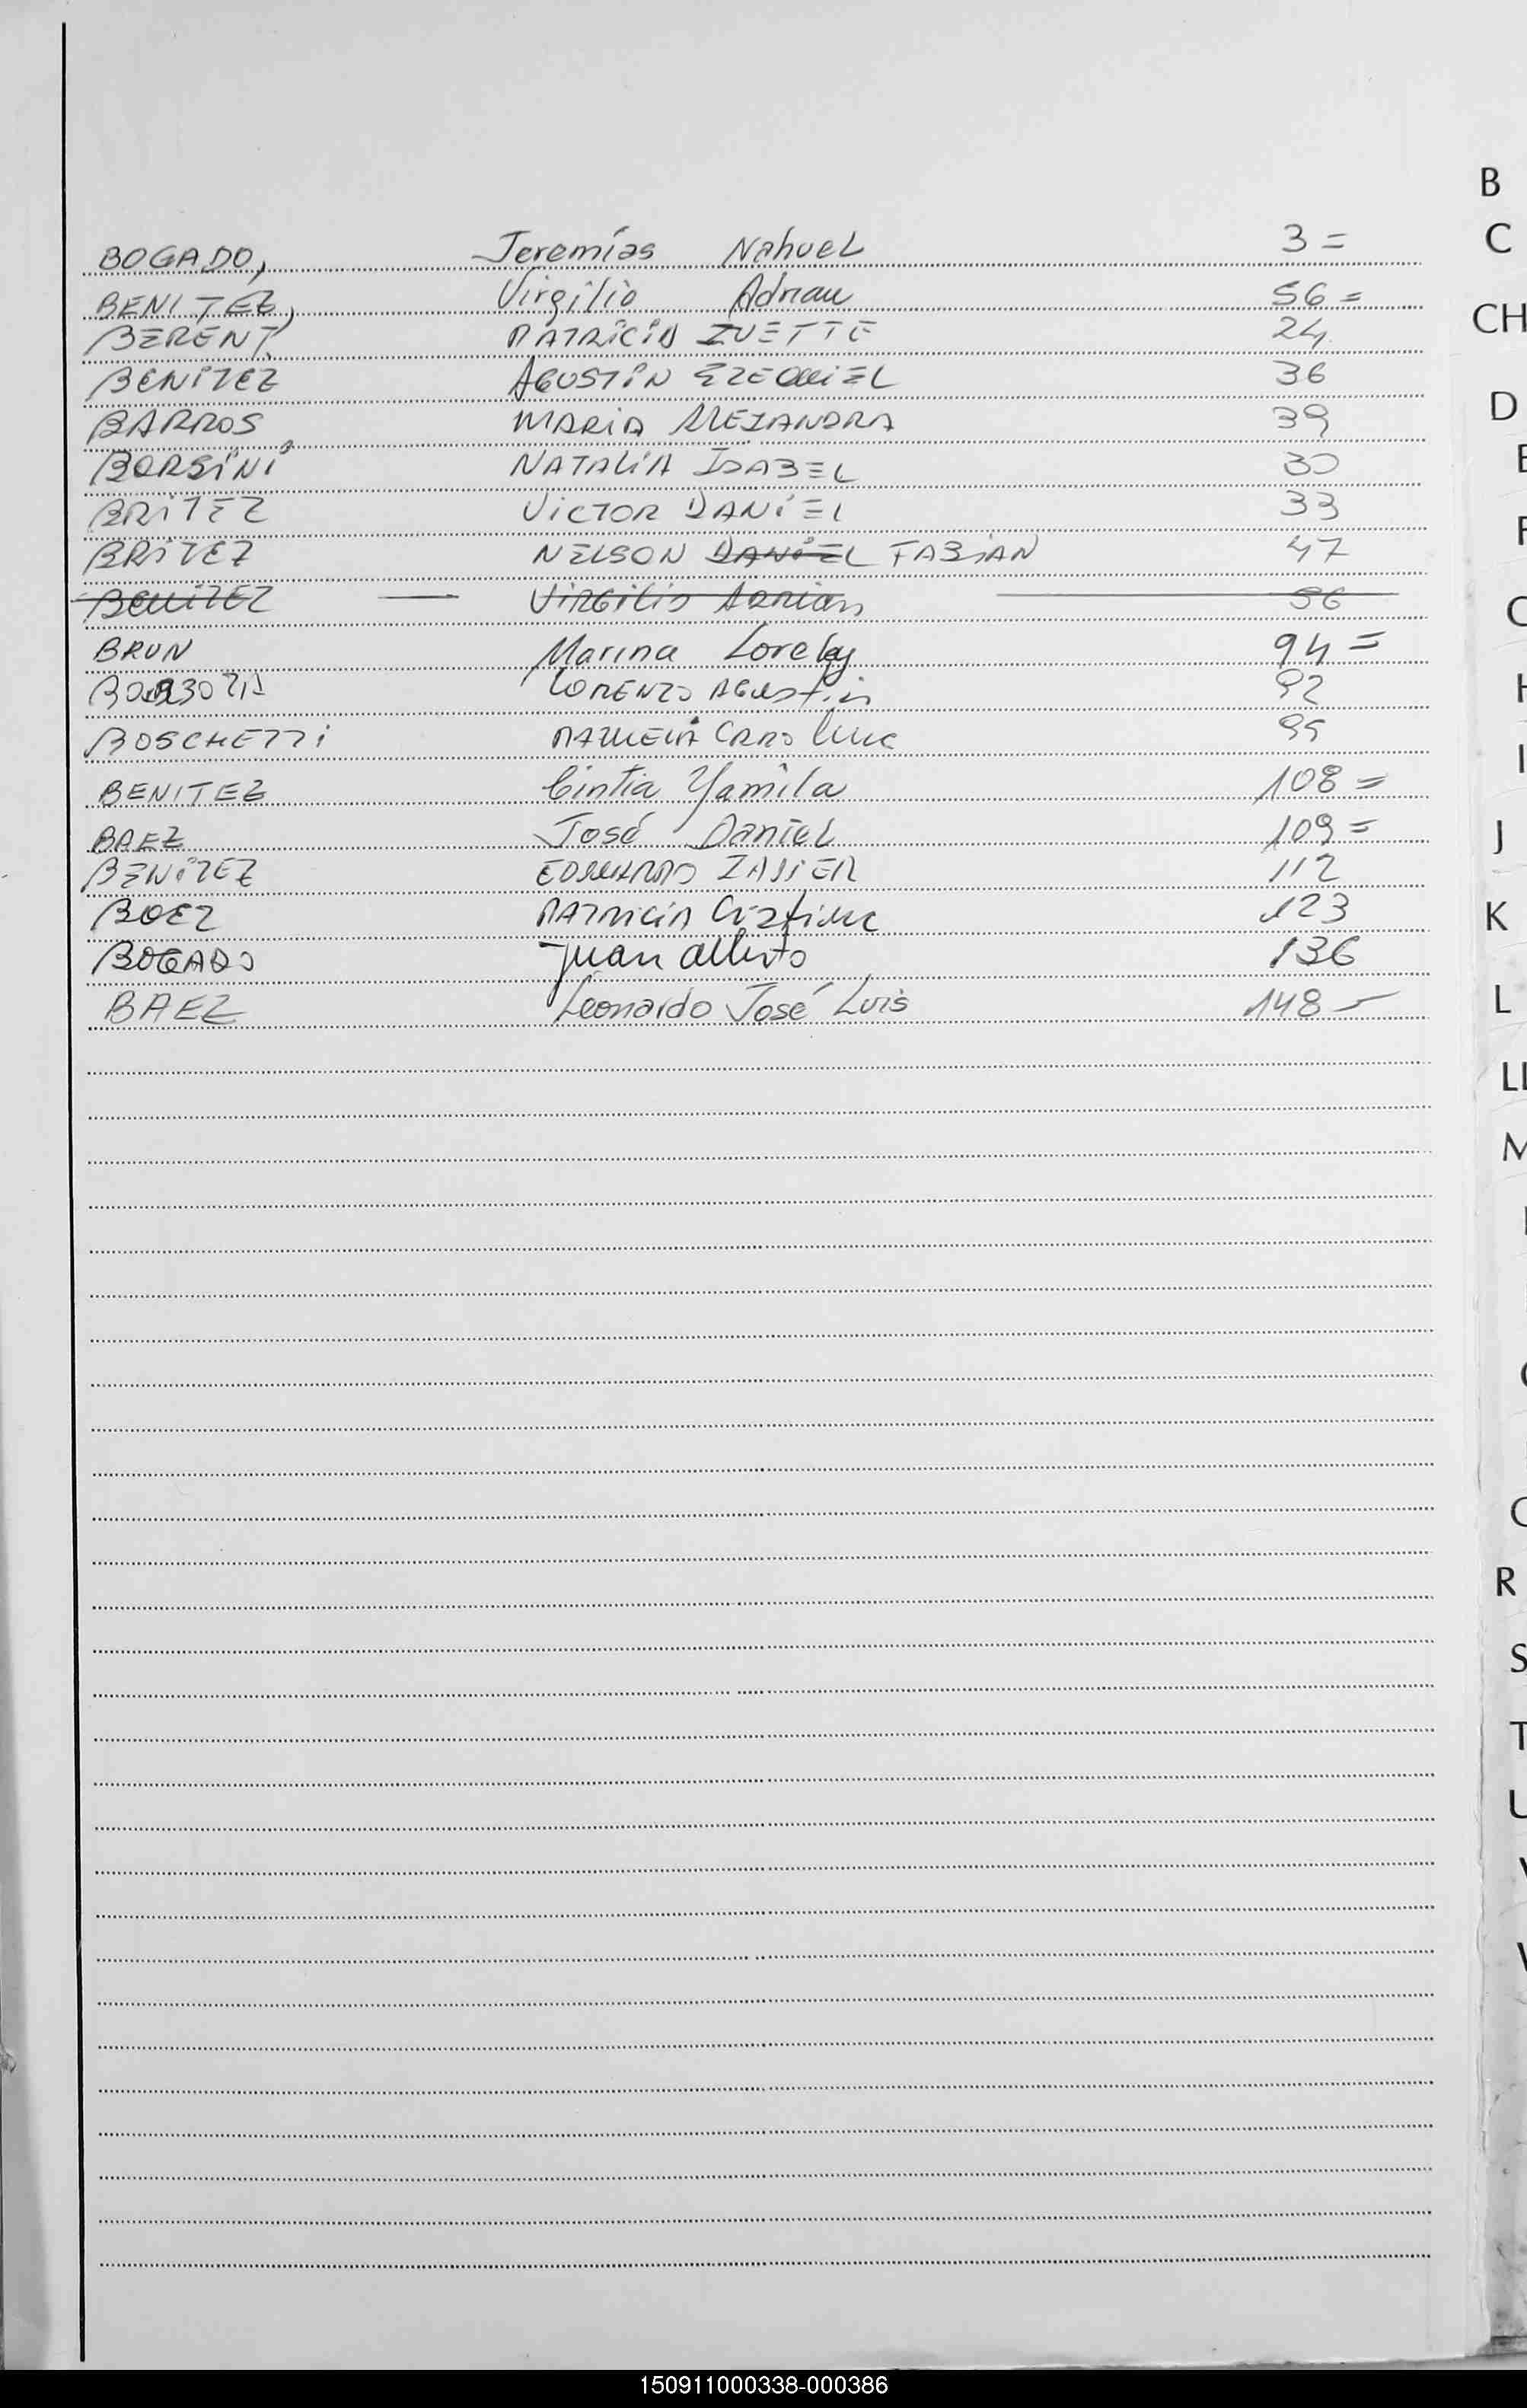 BOGADO, Jeremías Nahuel 3=
BENITEZ, Virgilio Adrian 56=
BERENT PATRICIA IVETTE 24
BENITEZ AGUSTIN EZEQUIEL 36
BARROS MARIA ALEJANDRA 39
BORSINI NATALIA ISABEL 30
BRITEZ VICTOR DANIEL 33
BRITEZ NELSON DANIEL FABIAN 47
BENITEZ VIRGILIO ADRIAN 56
BRUN Marina Lorely 94=
LORENZO AGUSTIN 92
BOSCHETTI PAMELA CAROLINA 95
BENITEZ Cintia Yamila 108=
BAEZ José Daniel 109=
BENITEZ EDUARDO JAVIER 112
BOEZ PATRICIA Cristina 123
BOGADO Juan Alberto 136
BAEZ Leonardo José Luis 148-
B
C
CH
D
J
K
L
R
S
T
150911000338-000386